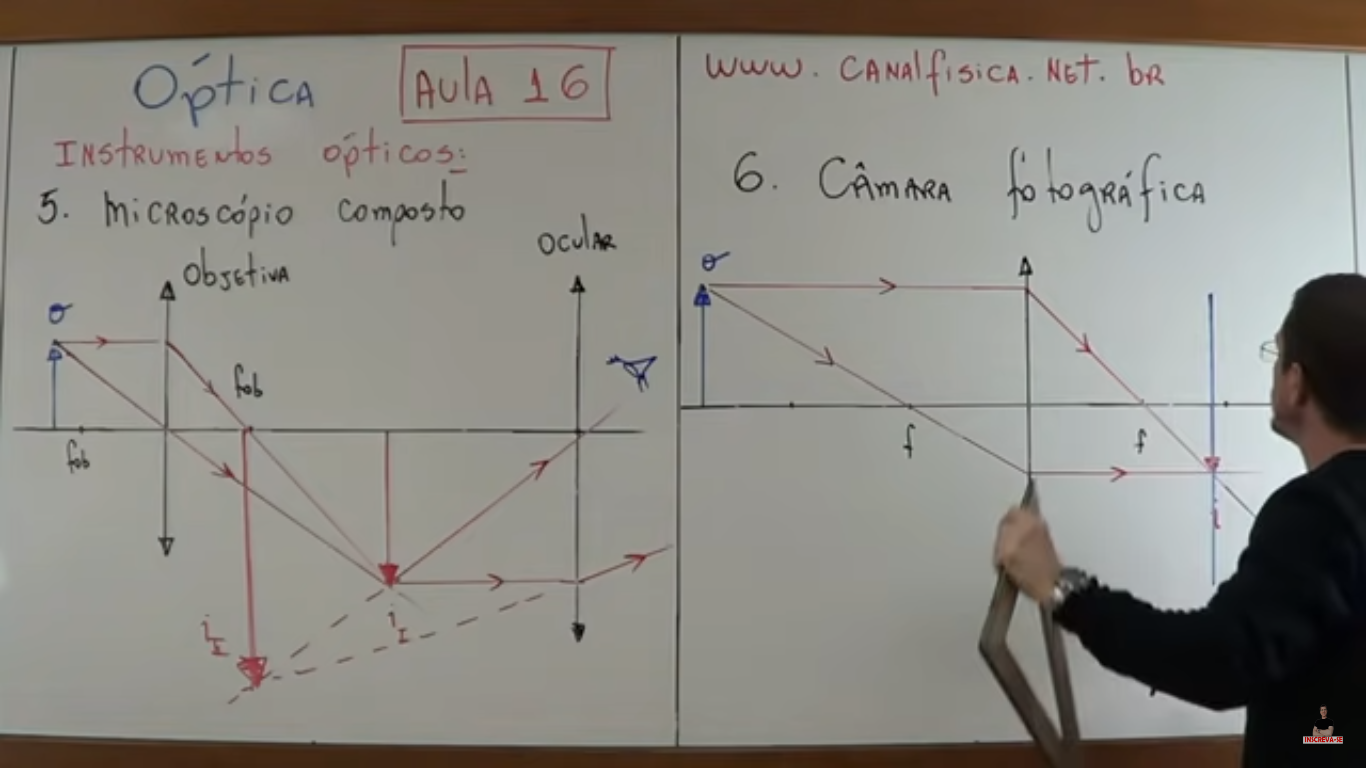 Óptica
AULA 16
INStRUMENtOS ópticos:
5. MICROSCópio composto
Objetiva
OCULAR
σ
fob
fob
i I
i I
www.CANAlfisica.NET.bR
6. CÂMARA fotográfica
σ
f
f
i
INSCREVA-SE